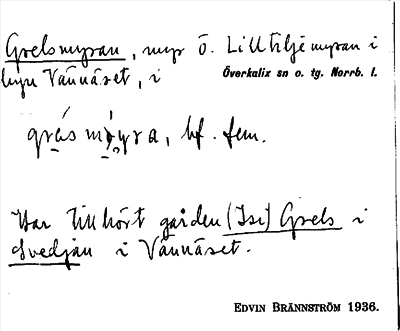 Grelsmyran, myr ö. Lilltiljemyran i
byn Vännäset, i Överkalix sn o. tg. Norrb. l.
gräsmýyra, bf. fem.
Har tillhört gården (Isi) Grels i
Svedjan i Vännäset.
EDVIN BRÄNNSTRÖM 1936.